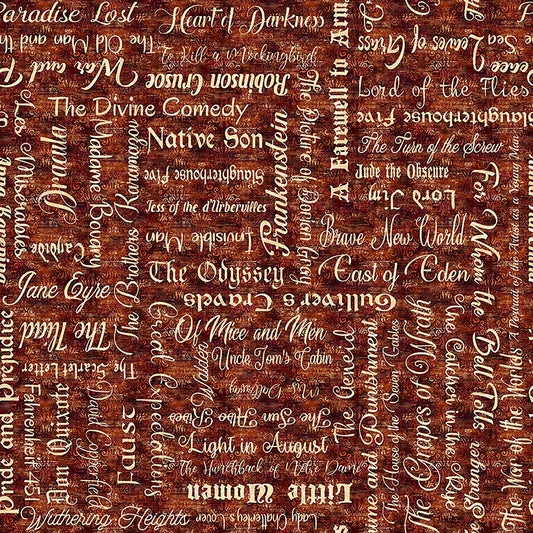 Paradise Lost
Heart of Darkness
The Old Man and the Sea
To Kill a Mockingbird
War and Peace
Robinson Crusoe
A Farewell to Arms
Leaves of Grass
Lord of the Flies
The Divine Comedy
Les Misérables
Dracula
Madame Bovary
The Brothers Karamazov
Native Son
Slaughterhouse Five
Frankenstein
The Picture of Dorian Gray
Slaughterhouse Five
The Turn of the Screw
Jude the Obscure
Lord Jim
Tess of the d'Urbervilles
Invisible Man
Brave New World
For Whom the Bell Tolls
A Portrait of the Artist as a Young Man
Anna Karenina
Candide
The Odyssey
East of Eden
Jane Eyre
Gulliver's Travels
The Iliad
Of Mice and Men
Uncle Tom's Cabin
Walden
Great Expectations
The Scarlet Letter
Pride and Prejudice
Fahrenheit 451
Don Quixote
David Copperfield
Faust
Mrs. Dalloway
The Sun Also Rises
Light in August
The Hunchback of Notre Dame
Little Women
The Aeneid
Crime and Punishment
The House of the Seven Gables
The Grapes of Wrath
The Catcher in the Rye
The War of the Worlds
Wuthering Heights
Lady Chatterley's Lover